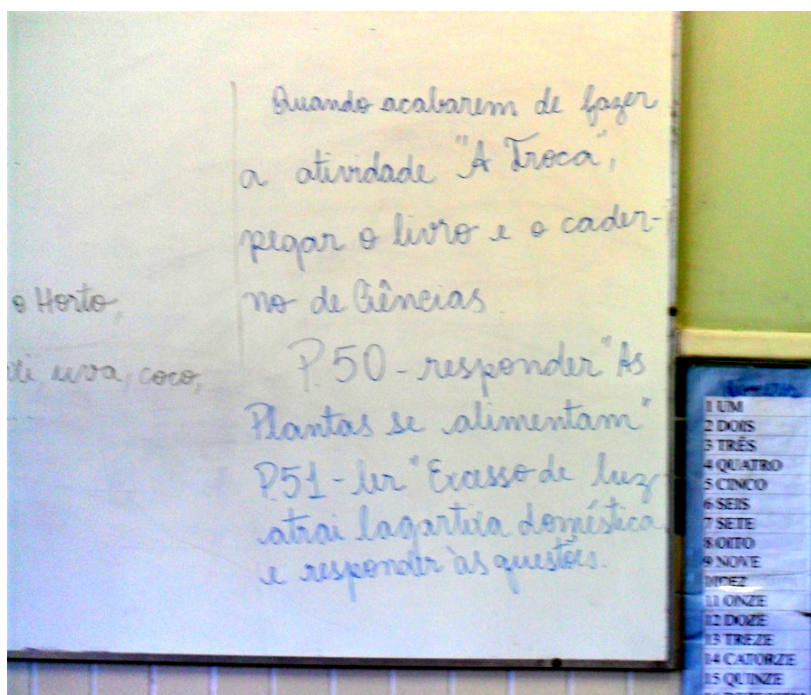 Quando acabarem de fazer
a atividade "A Troca",
pegar o livro e o cader-
no de Ciências.
P.50 - responder "As
Plantas se alimentam"
P.51 - ler "Excesso de luz
atrai lagartixa doméstica
e responder às questões.
o Horto,
uva, coco,
1 UM
2 DOIS
3 TRÊS
4 QUATRO
5 CINCO
6 SEIS
7 SETE
8 OITO
9 NOVE
10 DEZ
11 ONZE
12 DOZE
13 TREZE
14 CATORZE
15 QUINZE